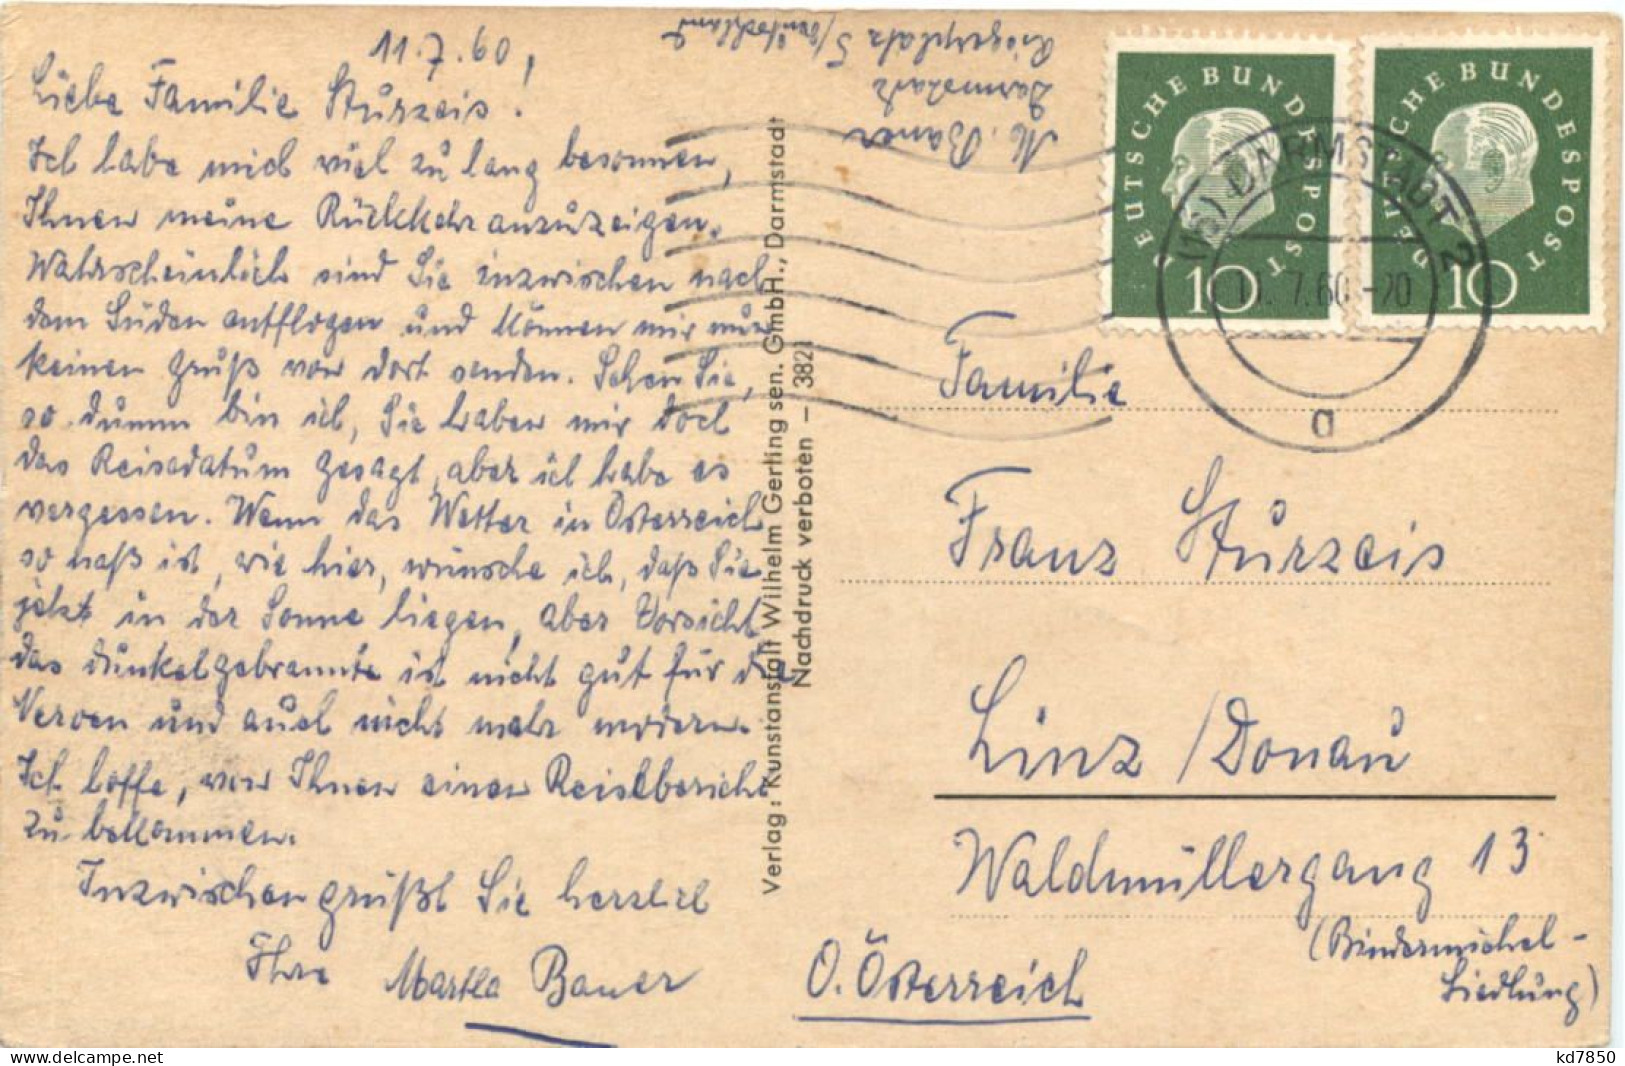 11.7.60,
Liebe Familie Stürzeis!
Ich habe mich viel zu lang besonnen,
Ihnen meine Rückkehr anzuzeigen.
Wahrscheinlich sind Sie inzwischen nach
dem Süden entflogen und können mir nur
keinen Gruß von dort senden. Sehen Sie,
so dumm bin ich, Sie haben mir doch
das Reisedatum gesagt, aber ich habe es
vergessen. Wenn das Wetter in Österreich
so naß ist, wie hier, wünsche ich, daß Sie
jetzt in der Sonne liegen, aber Vorsicht,
das dunkelgebrannte ist nicht gut für die
Nerven und auch nicht mehr modern.
Ich hoffe, von Ihnen einen Reisebericht
zu bekommen.
Inzwischen grüßt Sie herzlich
Ihre Martha Bauer
M. Bauer
Darmstadt
5/Deutschland
Verlag: Kunstanstalt Wilhelm Gerling sen. GmbH., Darmstadt
Nachdruck verboten – 3821
DEUTSCHE BUNDESPOST
10
DEUTSCHE BUNDESPOST
10
(16) DARMSTADT 2
11.7.60.-20
a
Familie
Franz Stürzeis
Linz/Donau
Waldmüllergang 13
(Bindermichel-
Siedlung)
O. Österreich
kd7850
delcampe.net